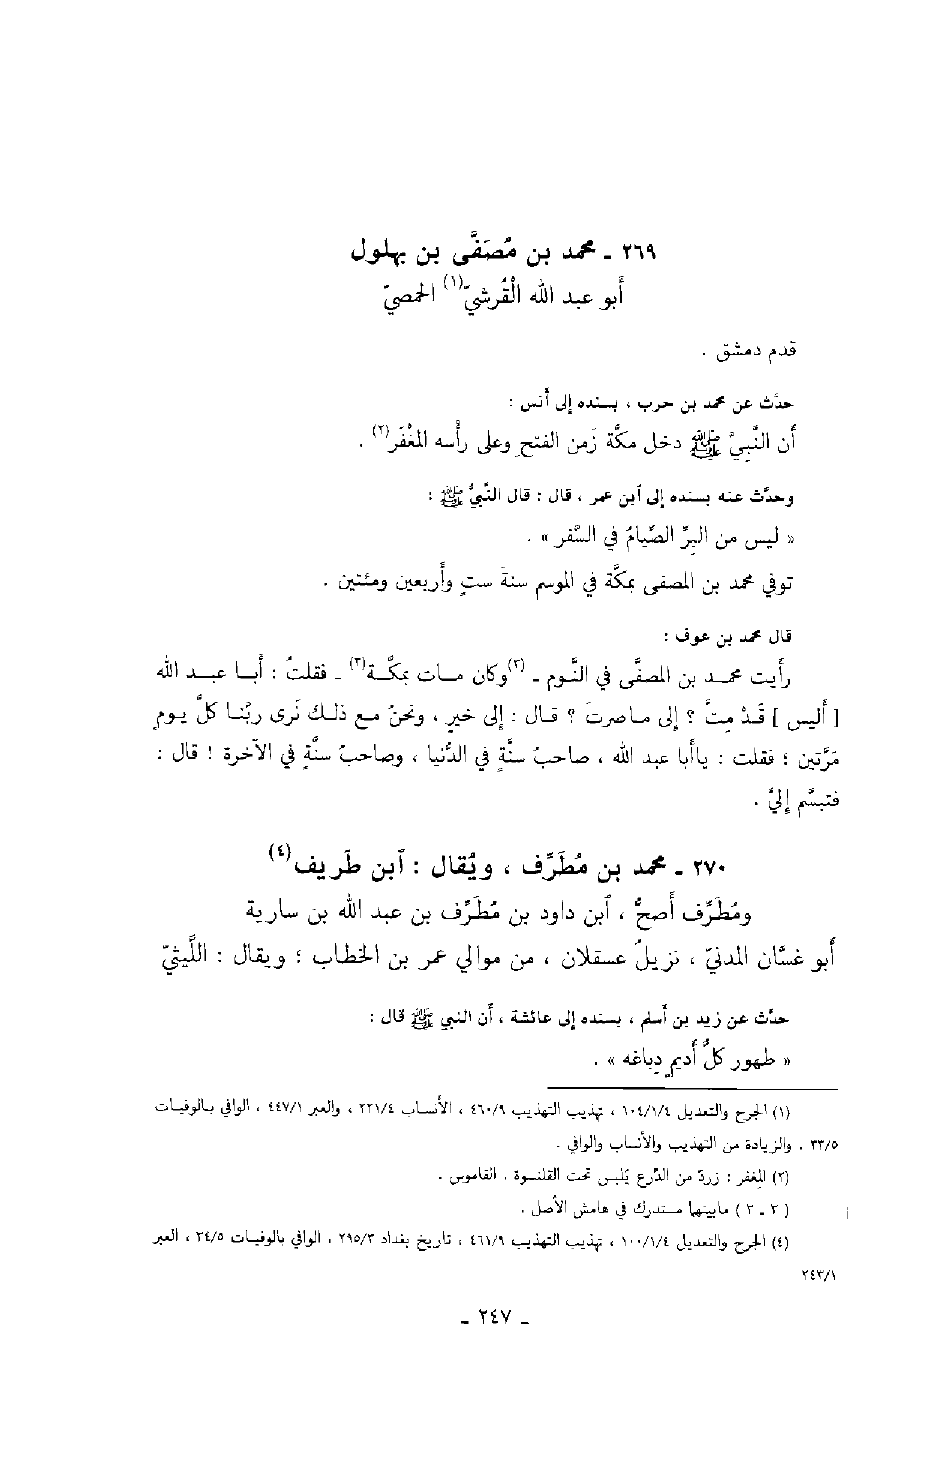 ٢٦٩ ـ محمد بن مُصَفَّى بن بهلول
أبو عبد الله الْقُرشيّ(١) الحمصيّ
قدم دمشق .
حدَّث عن محمد بن حرب ، بسنده إلى أنس :
أن النَّبيَّ ﷺ دخل مكَّة زَمن الفتح وعلى رأسه المغْفَر(٢) .
وحدَّث عنه بسنده إلى ابن عمر ، قال : قال النَّبيُّ ﷺ :
« ليس من البرِّ الصِّيامُ في السَّفر » .
توفي محمد بن المصفى بمكَّة في الموسم سنةَ ستٍ وأربعين ومئتين .
قال محمد بن عوف :
رأيت محمد بن المصفَّى في النَّوم ـ (٣)وكان مات بمكَّة(٣) ـ فقلتُ : أبا عبد الله
[ أليس ] قَدْ مِتَّ ؟ إلى ماصرتَ ؟ قال : إلى خيرٍ ، ونحنُ مع ذلك نَرى ربَّنا كلَّ يومٍ
مَرَّتين ؛ فقلت : ياأبا عبد الله ، صاحبُ سنَّةٍ في الدُّنيا ، وصاحبُ سنَّةٍ في الآخرة ! قال :
فتبسَّم إليَّ .
٢٧٠ ـ محمد بن مُطَرِّف ، ويُقال : ابن طَريف(٤)
ومُطَرِّف أصحُّ ، ابن داود بن مُطَرِّف بن عبد الله بن سارية
أبو غسَّان المدنيّ ، نزيلُ عسقلان ، من موالي عمر بن الخطاب ؛ ويقال : اللَّيثيّ
حدَّث عن زيد بن أسلم ، بسنده إلى عائشة ، أن النبي ﷺ قال :
« طهور كلُّ أديمٍ دِباغه » .
(١) الجرح والتعديل ١٠٤/١/٤ ، تهذيب التهذيب ٤٦٠/٩ ، الأنساب ٢٢١/٤ ، والعبر ٤٤٧/١ ، الوافي بالوفيات
٣٣/٥ . والزيادة من التهذيب والأنساب والوافي .
(٢) المِغفر : زردٌ من الدِّرع يُلبس تحت القلنسوة . القاموس .
( ٣ ـ ٣ ) مابينهما مستدرك في هامش الأصل .
(٤) الجرح والتعديل ١٠٠/١/٤ ، تهذيب التهذيب ٤٦١/٩ ، تاريخ بغداد ٢٩٥/٣ ، الوافي بالوفيات ٣٤/٥ ، العبر
٢٤٣/١
ـ ٢٤٧ ـ